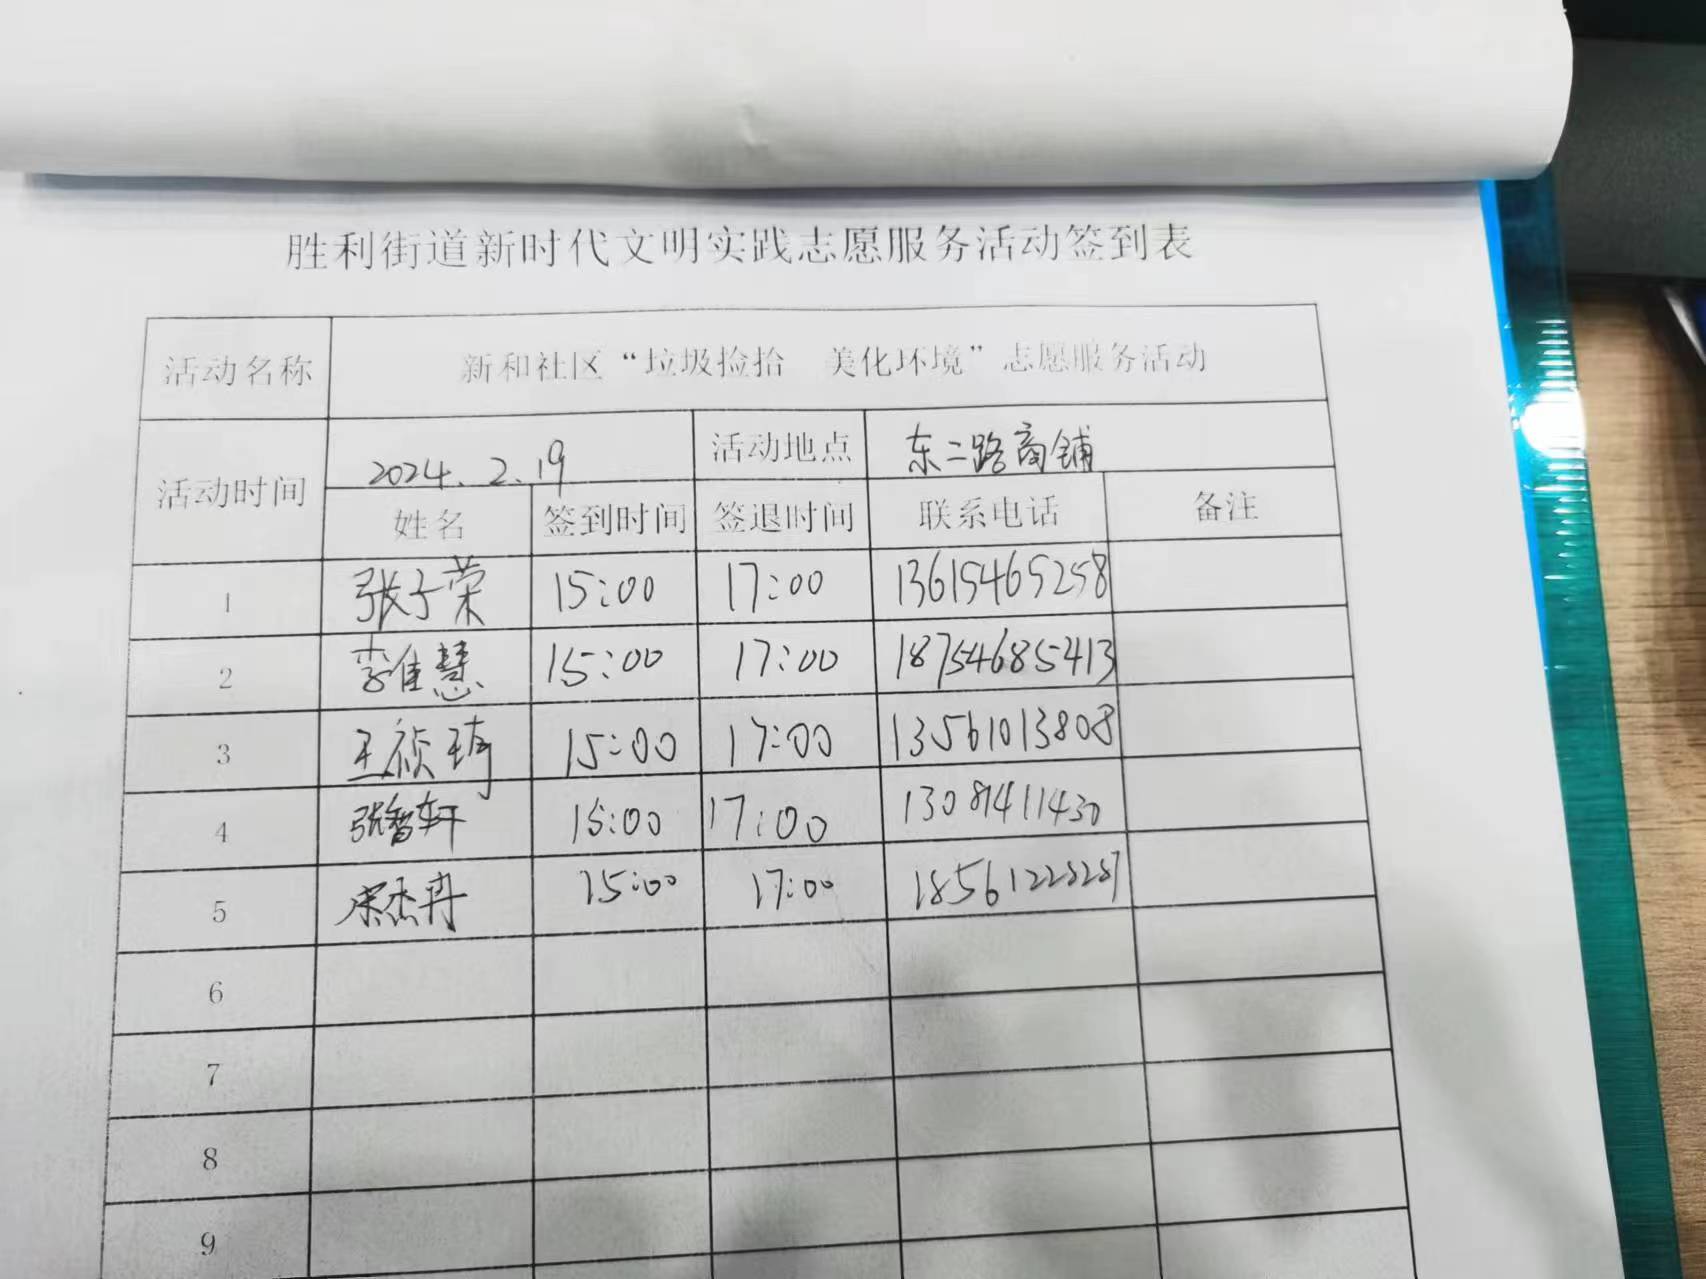 胜利街道新时代文明实践志愿服务活动签到表
活动名称 新和社区“垃圾捡拾 美化环境”志愿服务活动
活动时间 2024.2.19 活动地点 东二路商铺
姓名 签到时间 签退时间 联系电话 备注
1 张子荣 15:00 17:00 13615465258
2 李佳慧 15:00 17:00 18754685413
3 王祯琦 15:00 17:00 13561013808
4 张智轩 15:00 17:00
5 宋杰冉 15:00 17:00 18561228287
6
7
8
9